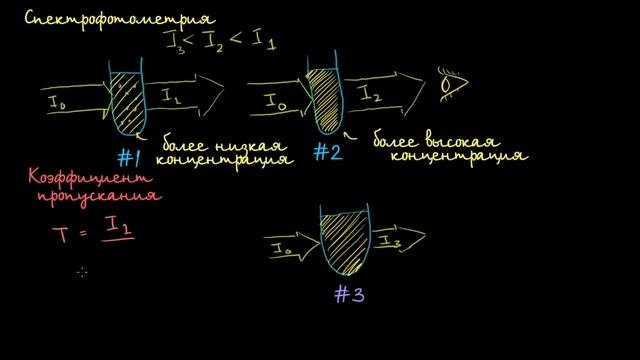 Спектрофотометрия
I₃ < I₂ < I₁
I₀
I₁
I₀
I₂
более низкая
концентрация
#1
более высокая
концентрация
#2
Коэффициент
пропускания
T = I₁
I₀
I₃
#3